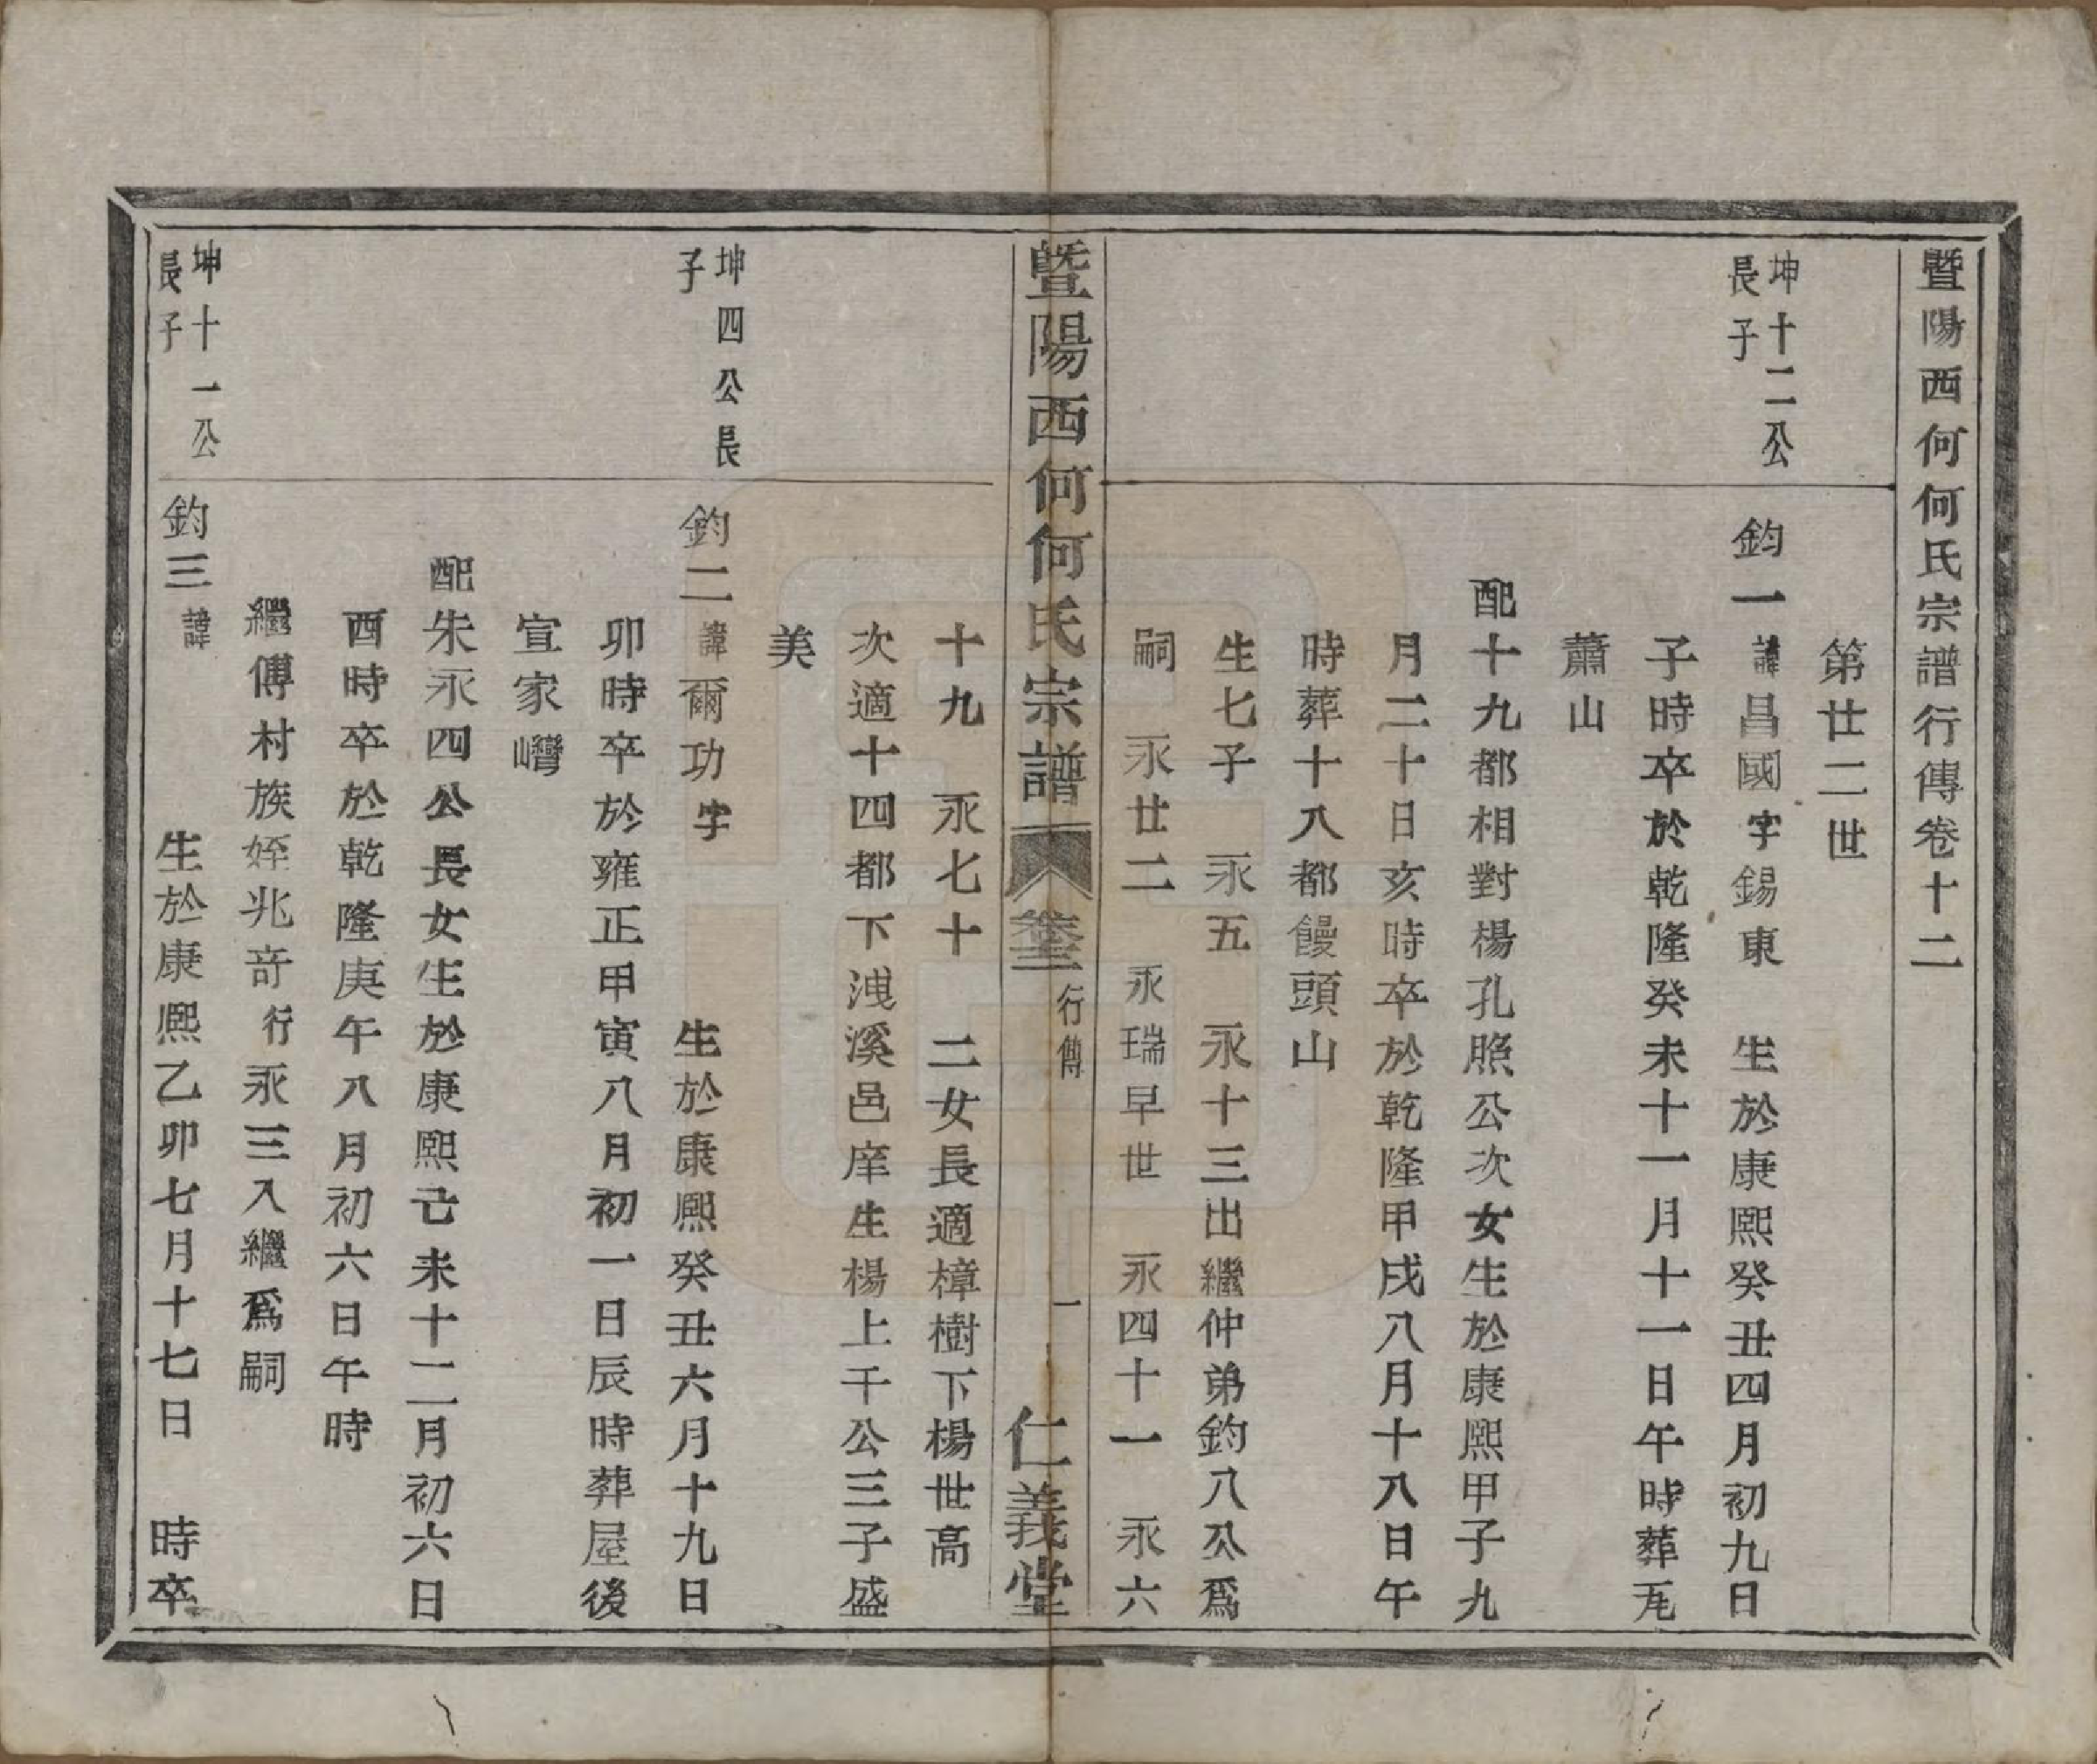 暨陽西何何氏宗譜行傳卷十二
第廿二世
坤十二公
長子
鈞一諱昌國字錫東 生於康熙癸丑四月初九日
子時卒於乾隆癸未十一月十一日午時葬兎
蕭山
配十九都相對楊孔照公次女生於康熙甲子九
月二十日亥時卒於乾隆甲戌八月十八日午
時葬十八都饅頭山
生七子 永五 永十三出繼仲弟鈞八公爲
嗣 永廿二 永瑞早世 永四十一 永六
暨陽西何何氏宗譜 卷十二 行傳 一 仁義堂
十九 永七十 二女長適樟樹下楊世高
次適十四都下洩溪邑庠生楊上千公三子盛
美
坤四公長
子
鈞二諱爾功字 生於康熙癸丑六月十九日
卯時卒於雍正甲寅八月初一日辰時葬屋後
宣家㠣
配朱永四公長女生於康熙己未十二月初六日
酉時卒於乾隆庚午八月初六日午時
繼傳村族姪兆奇行永三入繼爲嗣
坤十一公
長子
鈞三諱 生於康熙乙卯七月十七日 時卒